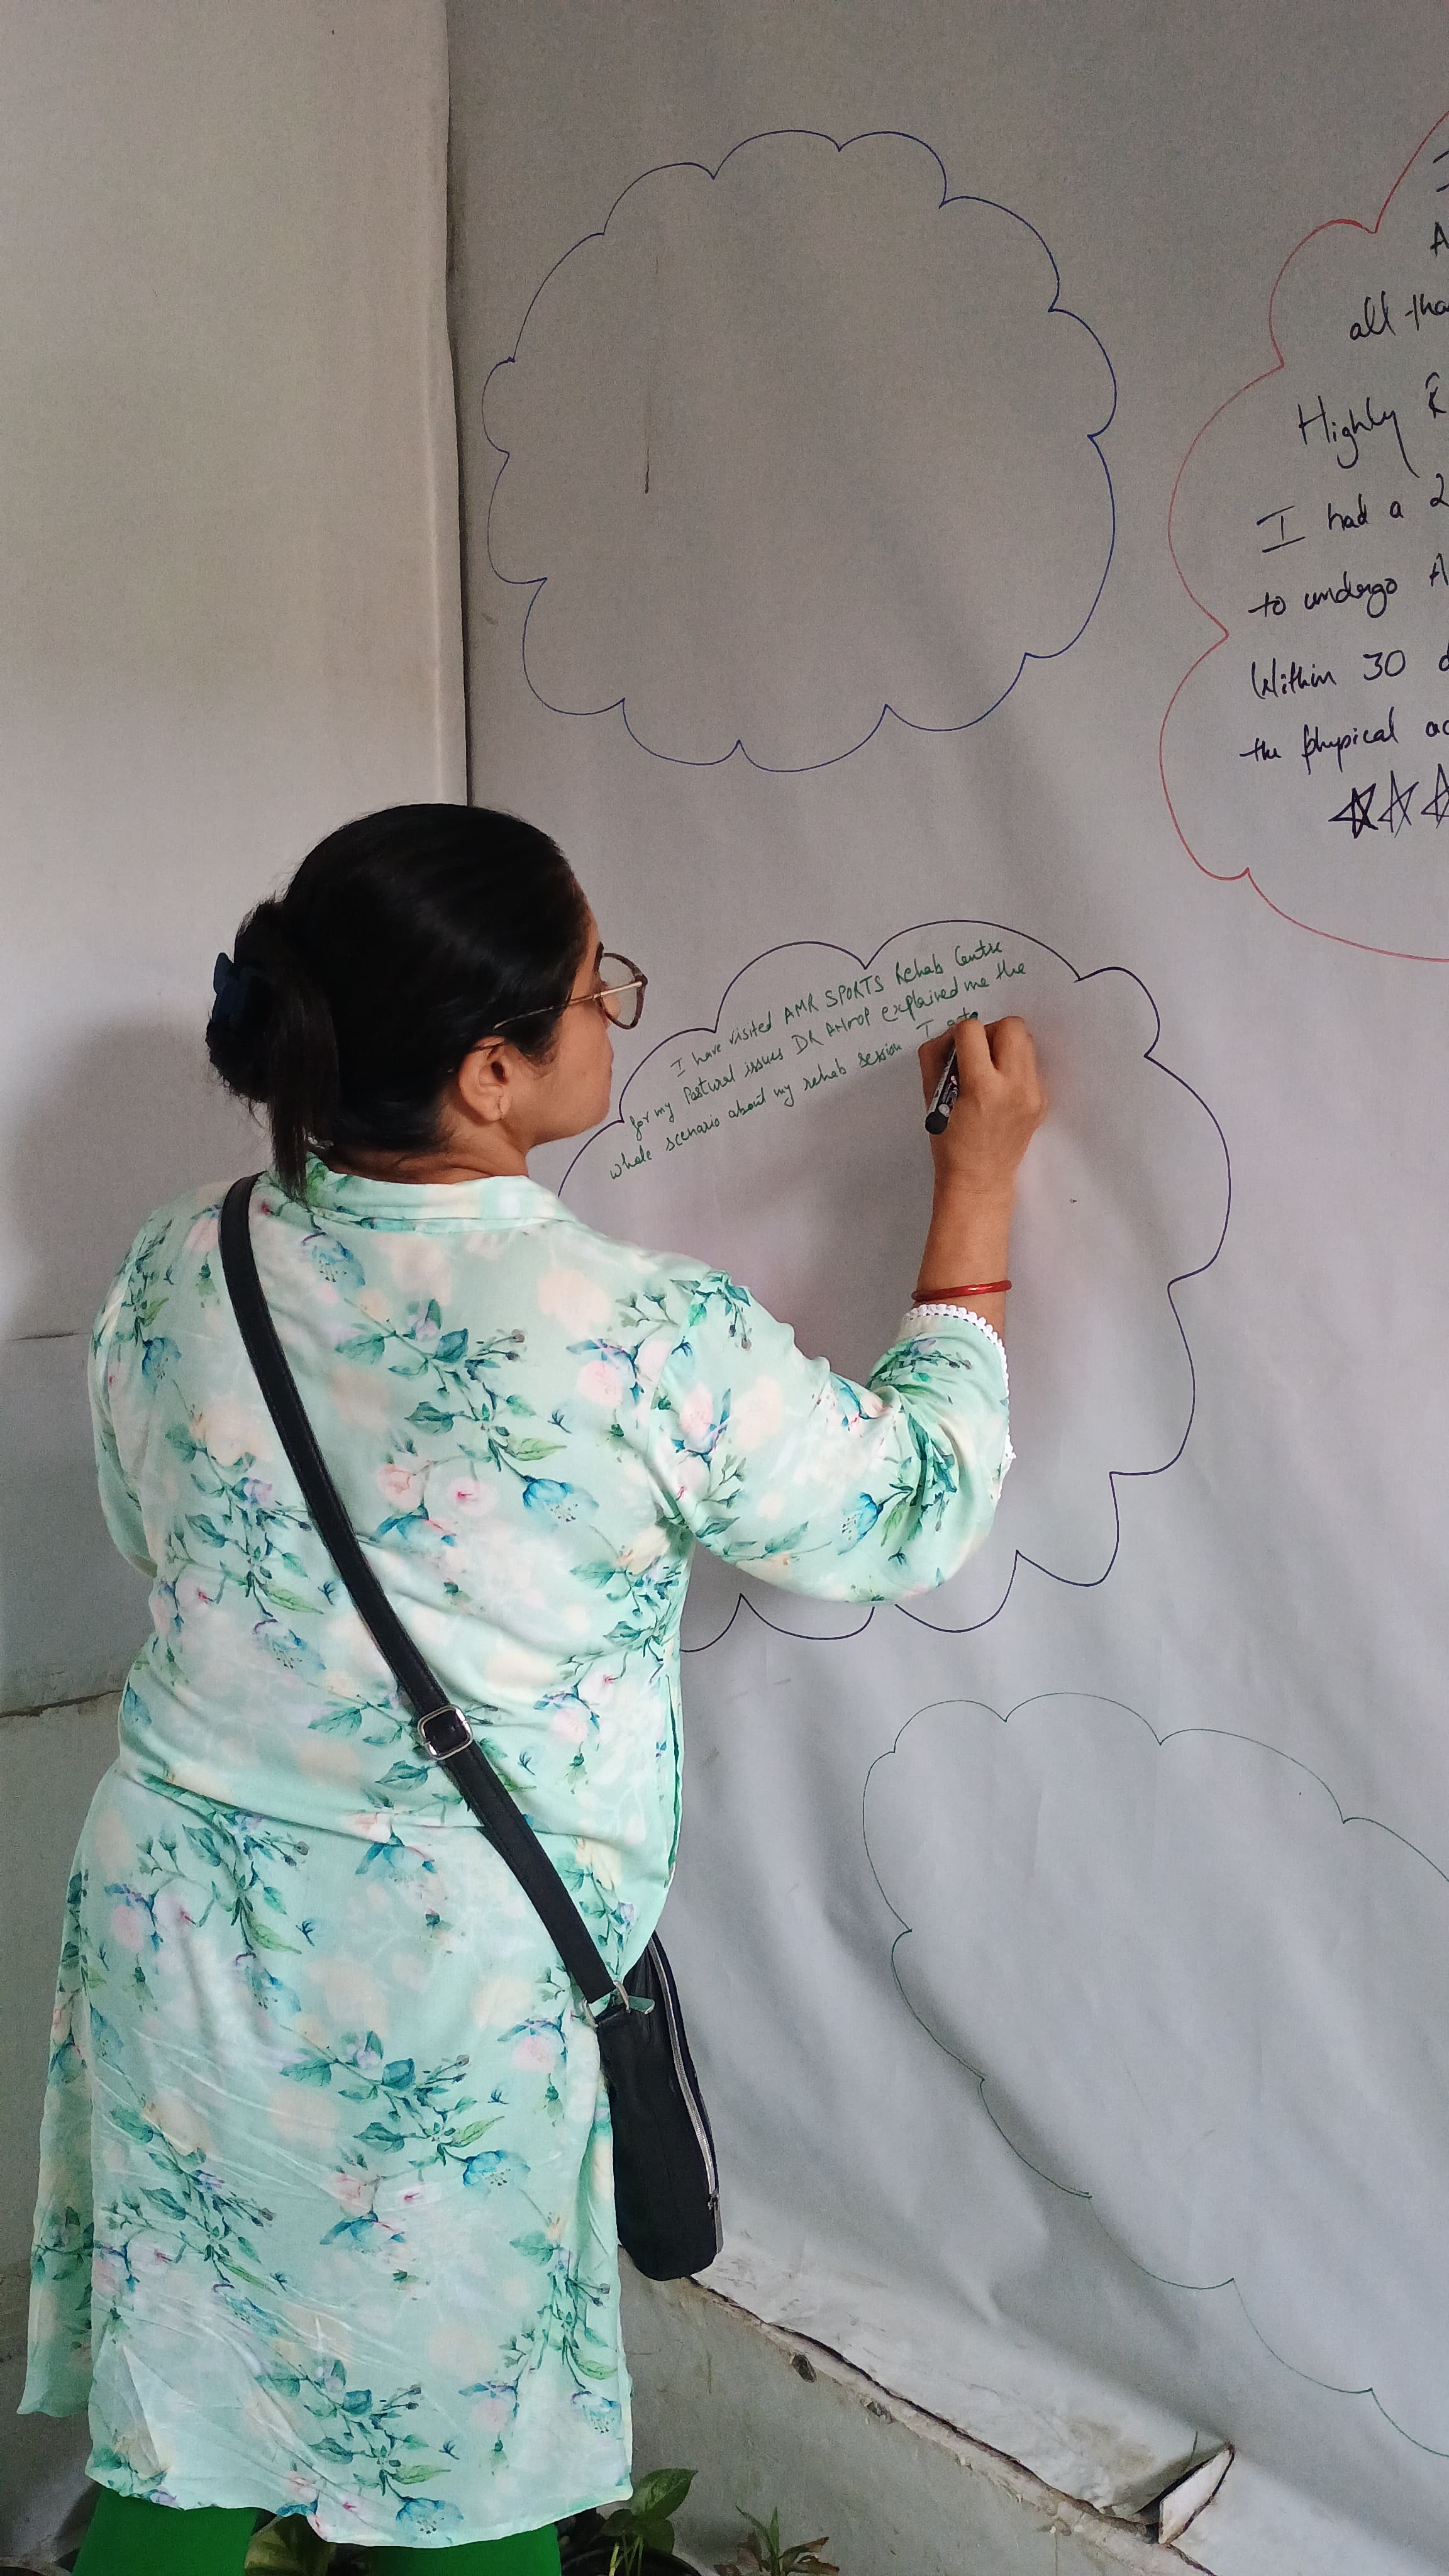 I have visited AMR SPORTS Rehab Centre
for my Postural issues DR explained me the
whole scenario about my rehab session I
all
Highly
I had a 2
to undergo A
Within 30
the physical